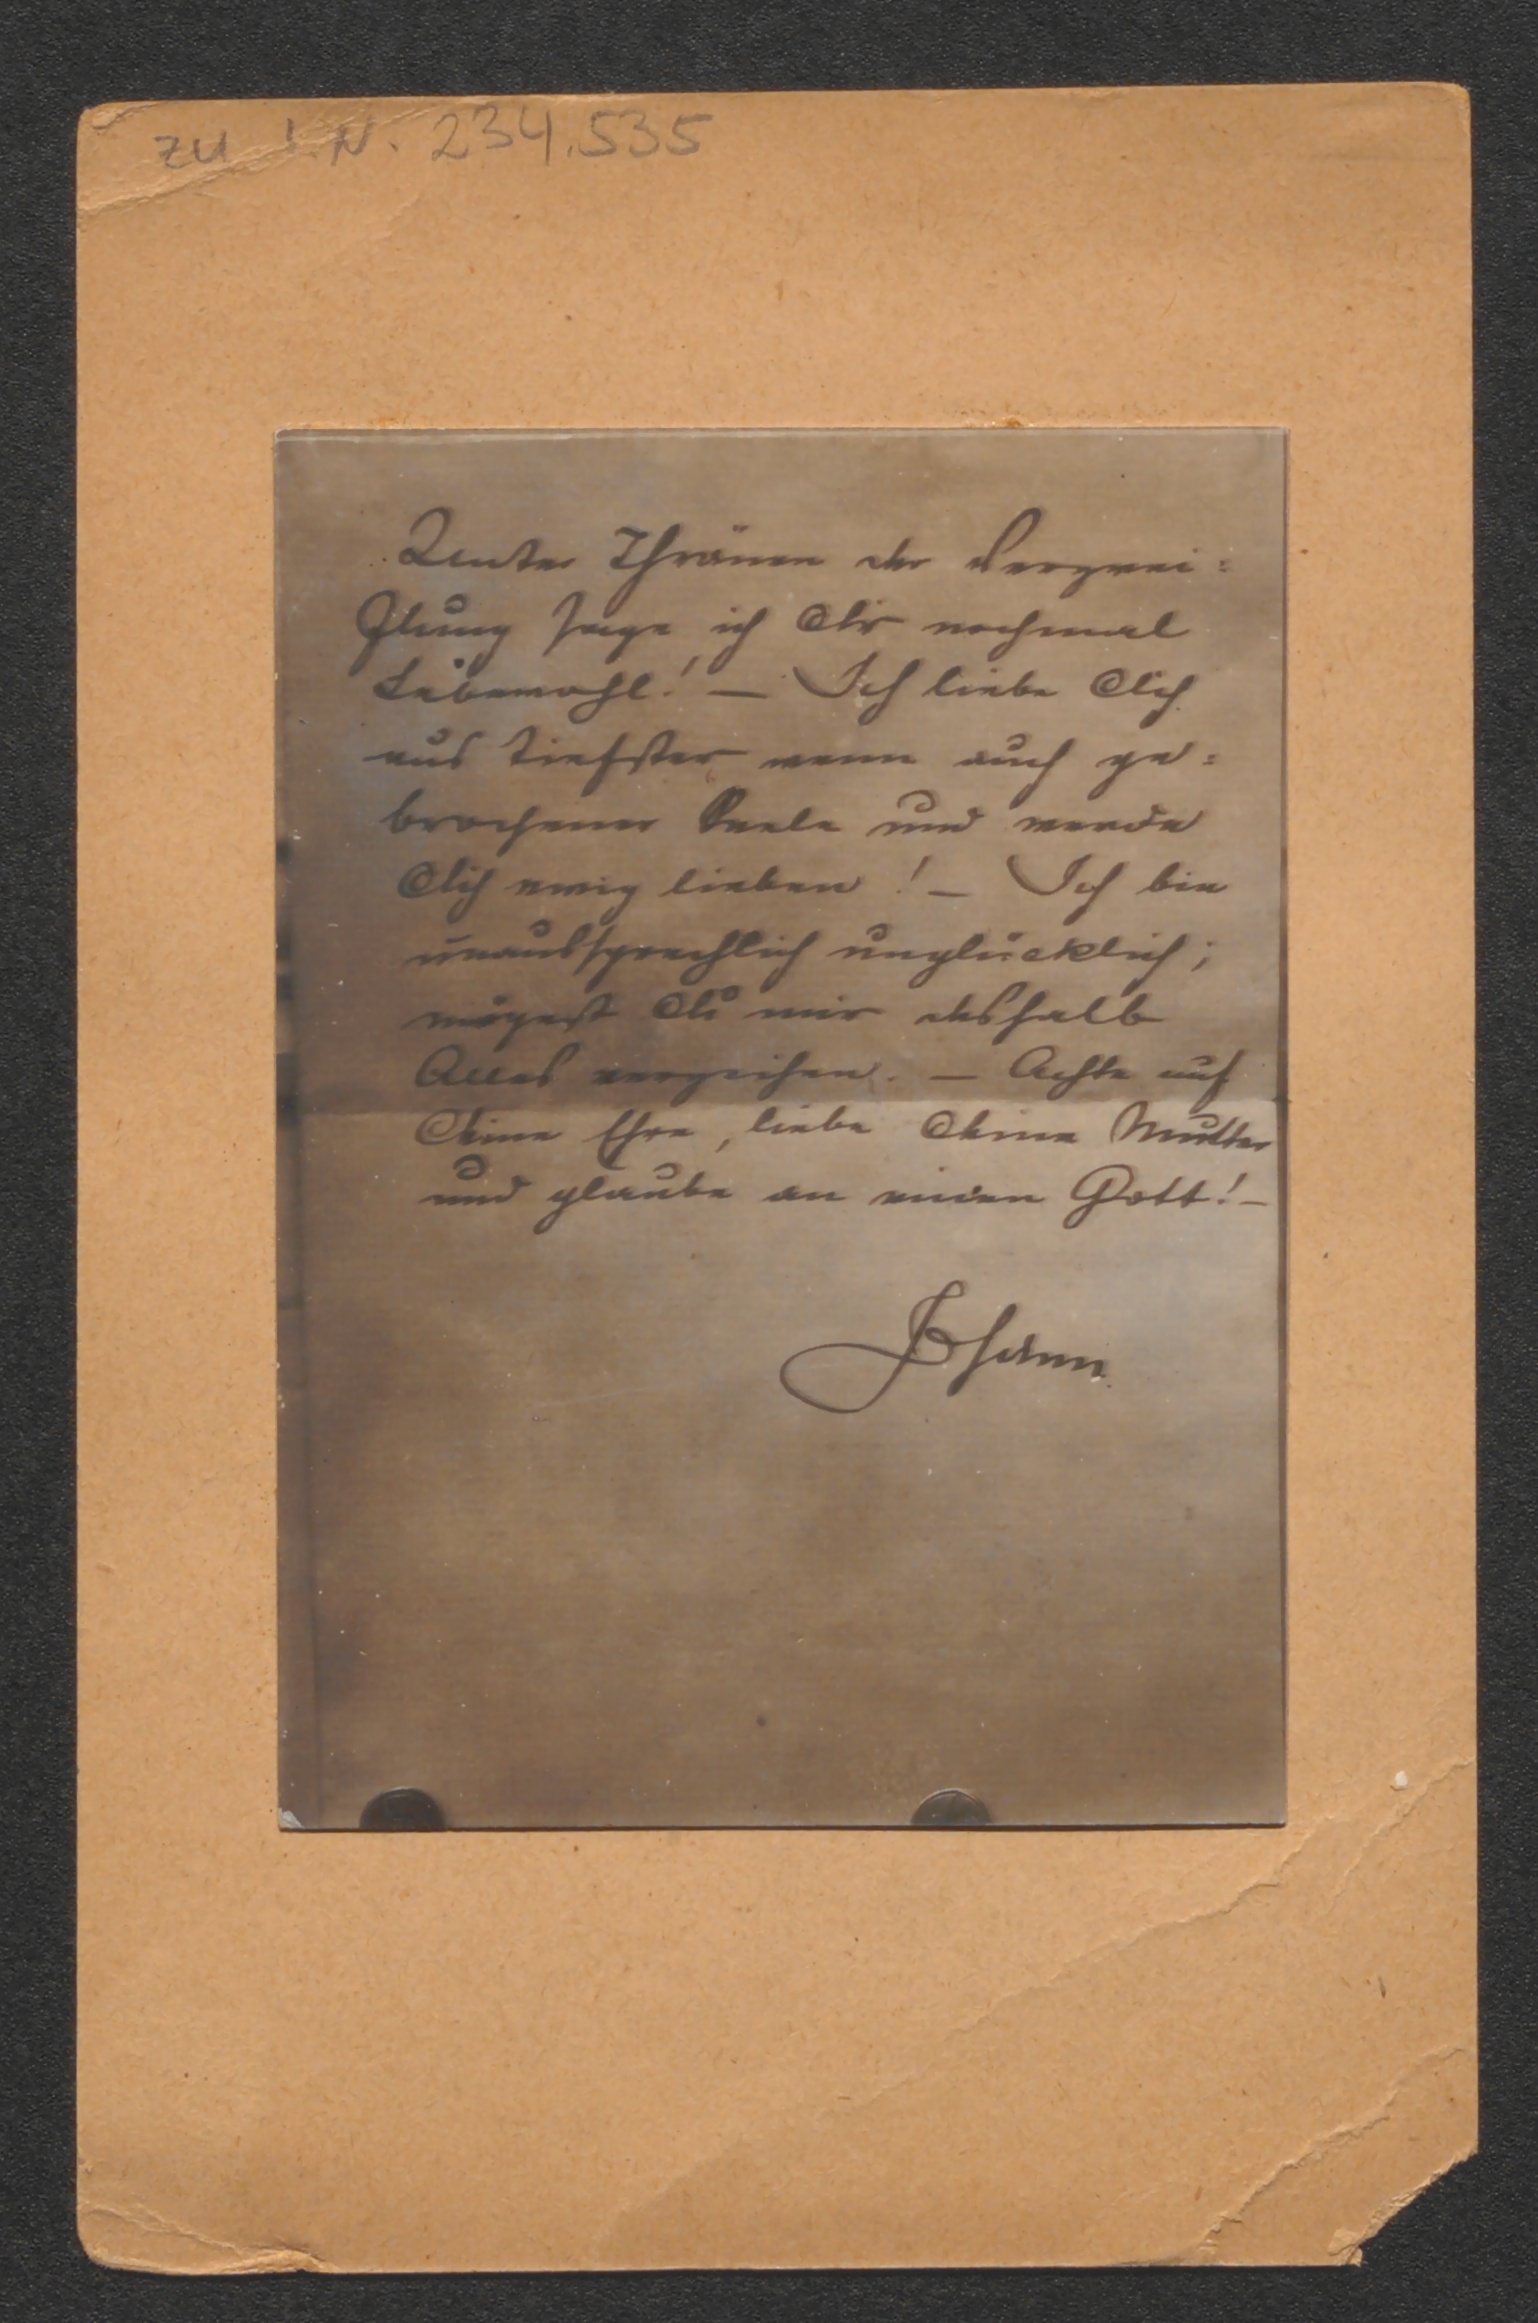 zu I.N. 234.535
Unter Thränen der Verzwei=
flung sage ich Dir nochmal
Lebewohl! — Ich liebe Dich
aus tiefster wenn auch ge=
brochener Seele und werde
Dich ewig lieben! — Ich bin
unaussprechlich unglücklich;
mögest Du mir deshalb
Alles verzeihen. — Achte auf
Deine Ehre, liebe Deine Mutter
und glaube an einen Gott! —
Johann